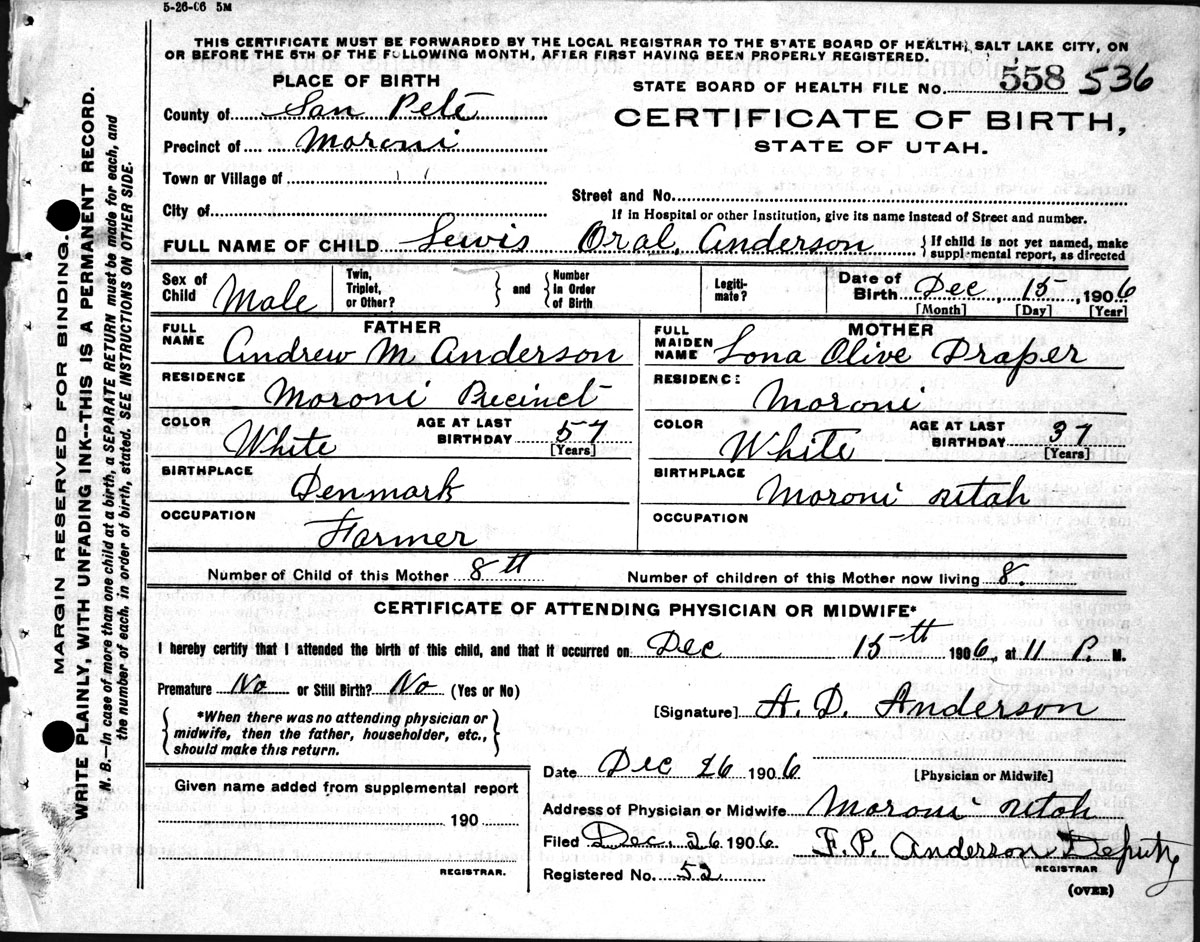 5-26-06 5M
THIS CERTIFICATE MUST BE FORWARDED BY THE LOCAL REGISTRAR TO THE STATE BOARD OF HEALTH, SALT LAKE CITY, ON
OR BEFORE THE 5TH OF THE FOLLOWING MONTH, AFTER FIRST HAVING BEEN PROPERLY REGISTERED.
PLACE OF BIRTH
STATE BOARD OF HEALTH FILE No. 558 536
County of San Pete
CERTIFICATE OF BIRTH,
Precinct of Moroni
STATE OF UTAH.
Town or Village of ' '
Street and No.
City of
If in Hospital or other Institution, give its name instead of Street and number.
FULL NAME OF CHILD Lewis Oral, Anderson
{If child is not yet named, make
supplemental report, as directed
Sex of Child Male
Twin, Triplet, or Other? } and { Number In Order of Birth
Legiti-mate?
Date of Birth Dec, 15, 1906
[Month] [Day] [Year]
FATHER
FULL NAME Andrew M Anderson
RESIDENCE Moroni Precinct
COLOR White AGE AT LAST BIRTHDAY 57 [Years]
BIRTHPLACE Denmark
OCCUPATION Farmer
MOTHER
FULL MAIDEN NAME Lona Olive Draper
RESIDENCE Moroni
COLOR White AGE AT LAST BIRTHDAY 37 [Years]
BIRTHPLACE Moroni Utah
OCCUPATION
Number of Child of this Mother 8th Number of children of this Mother now living 8.
CERTIFICATE OF ATTENDING PHYSICIAN OR MIDWIFE*
I hereby certify that I attended the birth of this child, and that it occurred on Dec 15th 1906, at 11 P. M.
Premature No or Still Birth? No (Yes or No)
{*When there was no attending physician or
midwife, then the father, householder, etc.,
should make this return.}
[Signature] A. D. Anderson
[Physician or Midwife]
Date Dec 26 1906
Given name added from supplemental report
190
REGISTRAR.
Address of Physician or Midwife Moroni Utah
Filed Dec. 26 1906 F. P. Anderson Deputy
REGISTRAR
Registered No. 52
(OVER)
MARGIN RESERVED FOR BINDING.
WRITE PLAINLY, WITH UNFADING INK--THIS IS A PERMANENT RECORD.
N. B.—In case of more than one child at a birth, a SEPARATE RETURN must be made for each, and
the number of each, in order of birth, stated. SEE INSTRUCTIONS ON OTHER SIDE.